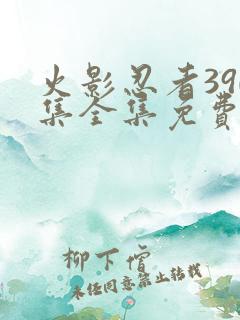 火影忍者39
集全集免费
柳下惛
未经同意禁止转载